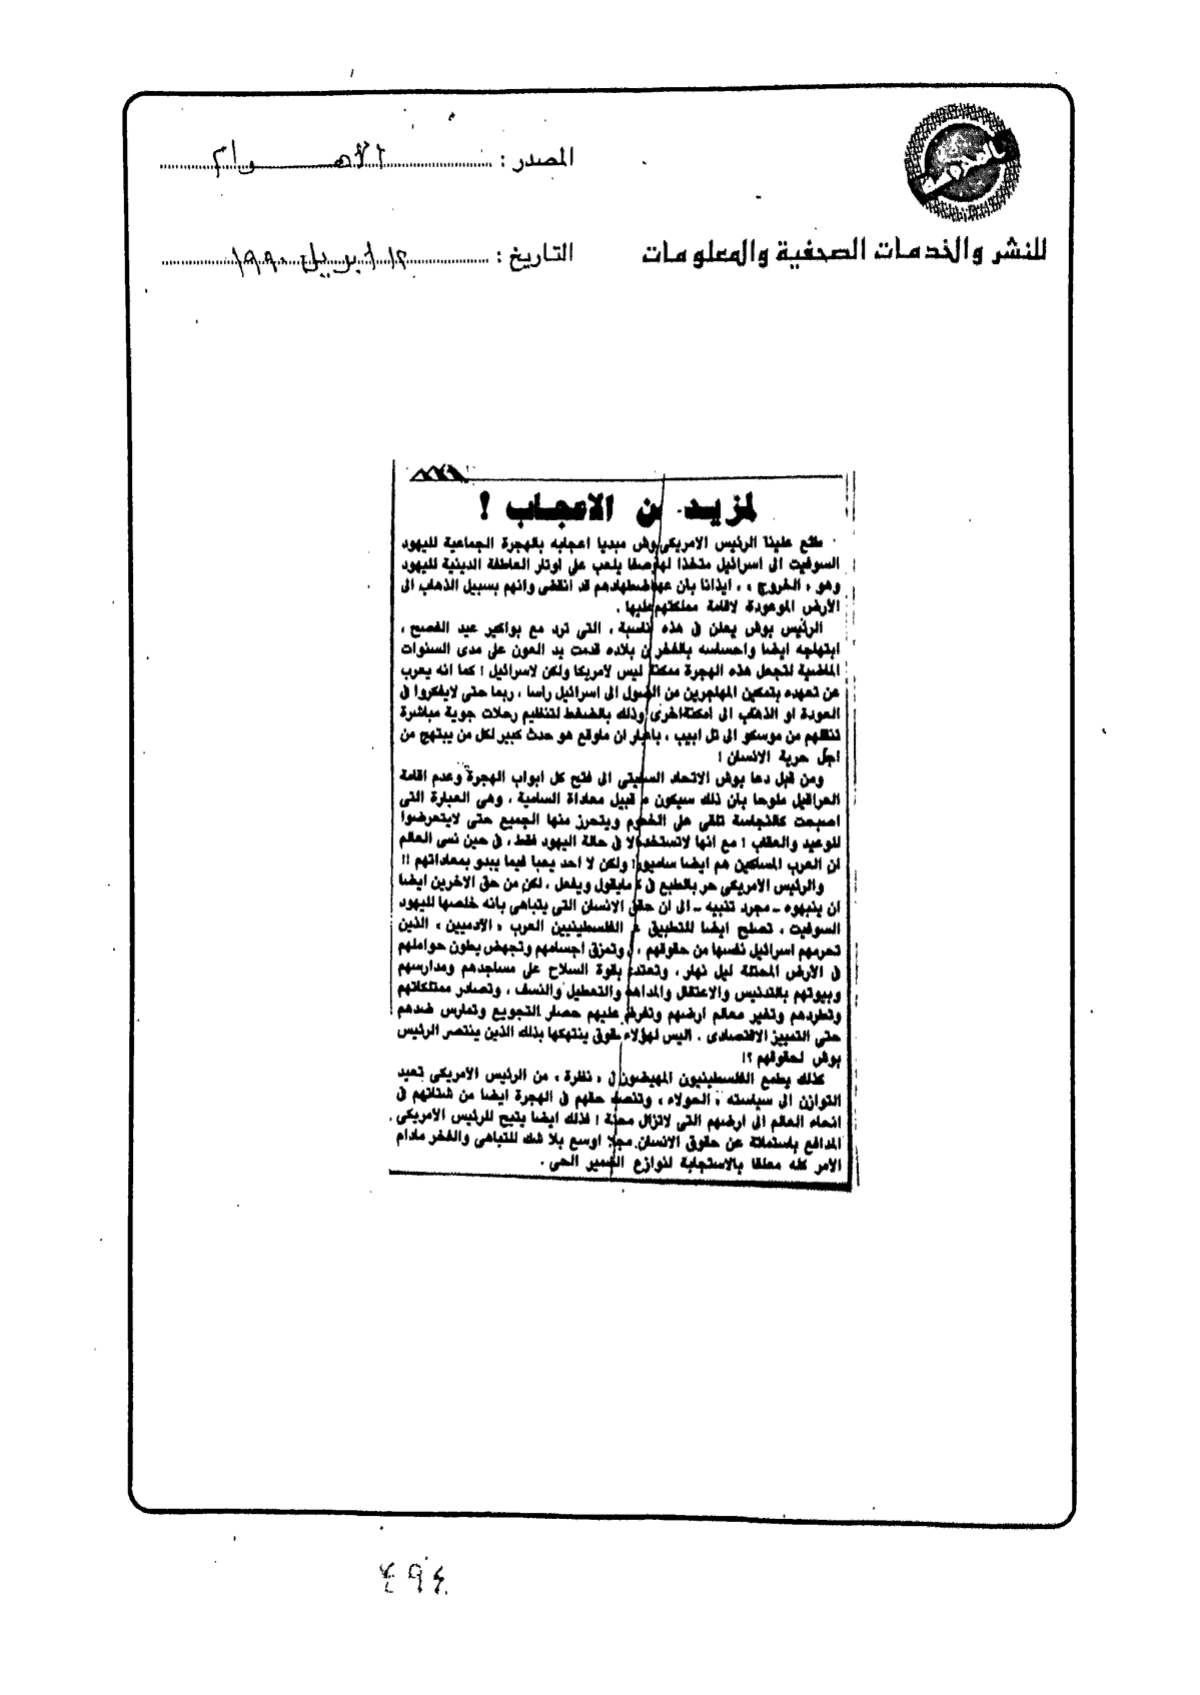 المصدر : الأهرام
للنشر والخدمات الصحفية والمعلومات
التاريخ : ١٢ ابريل ١٩٩٠
لمزيد من الاعجاب !
طلع علينا الرئيس الامريكى بوش مبديا اعجابه بالهجرة الجماعية لليهود
السوفيت الى اسرائيل متخذا لها وصفا يلعب على اوتار العاطفة الدينية لليهود
وهو « الخروج » ، ايذانا بان عهد اضطهادهم قد انقضى وانهم بسبيل الذهاب الى
الأرض الموعودة لاقامة مملكتهم عليها .
الرئيس بوش يعلن فى هذه المناسبة ، التى ترد مع بواكير عيد الفصح ،
ابتهاجه ايضا واحساسه بالفخر لان بلاده قدمت يد العون على مدى السنوات
الماضية لتجعل هذه الهجرة ممكنة ليس لامريكا ولكن لاسرائيل ! كما انه يعرب
عن تعهده بتمكين المهاجرين من الوصول الى اسرائيل راسا ، ربما حتى لايفكروا فى
العودة او الذهاب الى امكنة اخرى وذلك بالضغط لتنظيم رحلات جوية مباشرة
تنقلهم من موسكو الى تل ابيب ، باعتبار ان ماوقع هو حدث كبير لكل من يبتهج من
اجل حرية الانسان !
ومن قبل دعا بوش الاتحاد السوفيتى الى فتح كل ابواب الهجرة وعدم اقامة
العراقيل ملوحا بان ذلك سيكون من قبيل معاداة السامية ، وهى العبارة التى
اصبحت كالنجاسة تلقى على الخصوم ويتحرز منها الجميع حتى لايتعرضوا
للوعيد والعقاب ! مع انها لاتستخدم الا فى حالة اليهود فقط ، فى حين نسى العالم
ان العرب المساكين هم ايضا ساميون ! ولكن لا احد يعبا فيما يبدو بمعاداتهم !!
والرئيس الامريكى حر بالطبع فى كل مايقول ويفعل ، لكن من حق الاخرين ايضا
ان ينبهوه ـ مجرد تنبيه ـ الى ان حقوق الانسان التى يتباهى بانه خلصها لليهود
السوفيت ، تصلح ايضا للتطبيق على الفلسطينيين العرب « الآدميين » الذين
تحرمهم اسرائيل نفسها من حقوقهم ، وتمزق اجسامهم وتجهض بطون حواملهم
فى الأرض المحتلة ليل نهار ، وتعتدى بقوة السلاح على مساجدهم ومدارسهم
وبيوتهم بالتدنيس والاعتقال والمداهمة والتعطيل والنسف ، وتصادر ممتلكاتهم
وتطردهم وتغير معالم ارضهم وتفرض عليهم حصار التجويع وتمارس ضدهم
حتى التمييز الاقتصادى . اليس لهؤلاء حقوق ينتهكها بذلك الذين ينتصر الرئيس
بوش لحقوقهم ؟!
كذلك يطمع الفلسطينيون المهيضون فى « نظرة » من الرئيس الأمريكى تعيد
التوازن الى سياسته « الحولاء » وتنصف حقهم فى الهجرة ايضا من شتاتهم فى
انحاء العالم الى ارضهم التى لاتزال محتلة ! فذلك ايضا يتيح للرئيس الامريكى ،
المدافع باستماتة عن حقوق الانسان مجالا اوسع بلا شك للتباهى والفخر مادام
الامر كله معلقا بالاستجابة لنوازع الضمير الحى .
٤٩٤